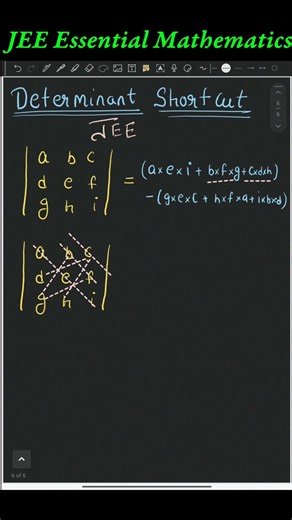 JEE Essential Mathematics
Determinant Shortcut
JEE
a b c
d e f
g h i
= (a×e×i + b×f×g + c×d×h)
-(g×e×c + h×f×a + i×b×d)
a b c
d e f
g h i
6 of 6